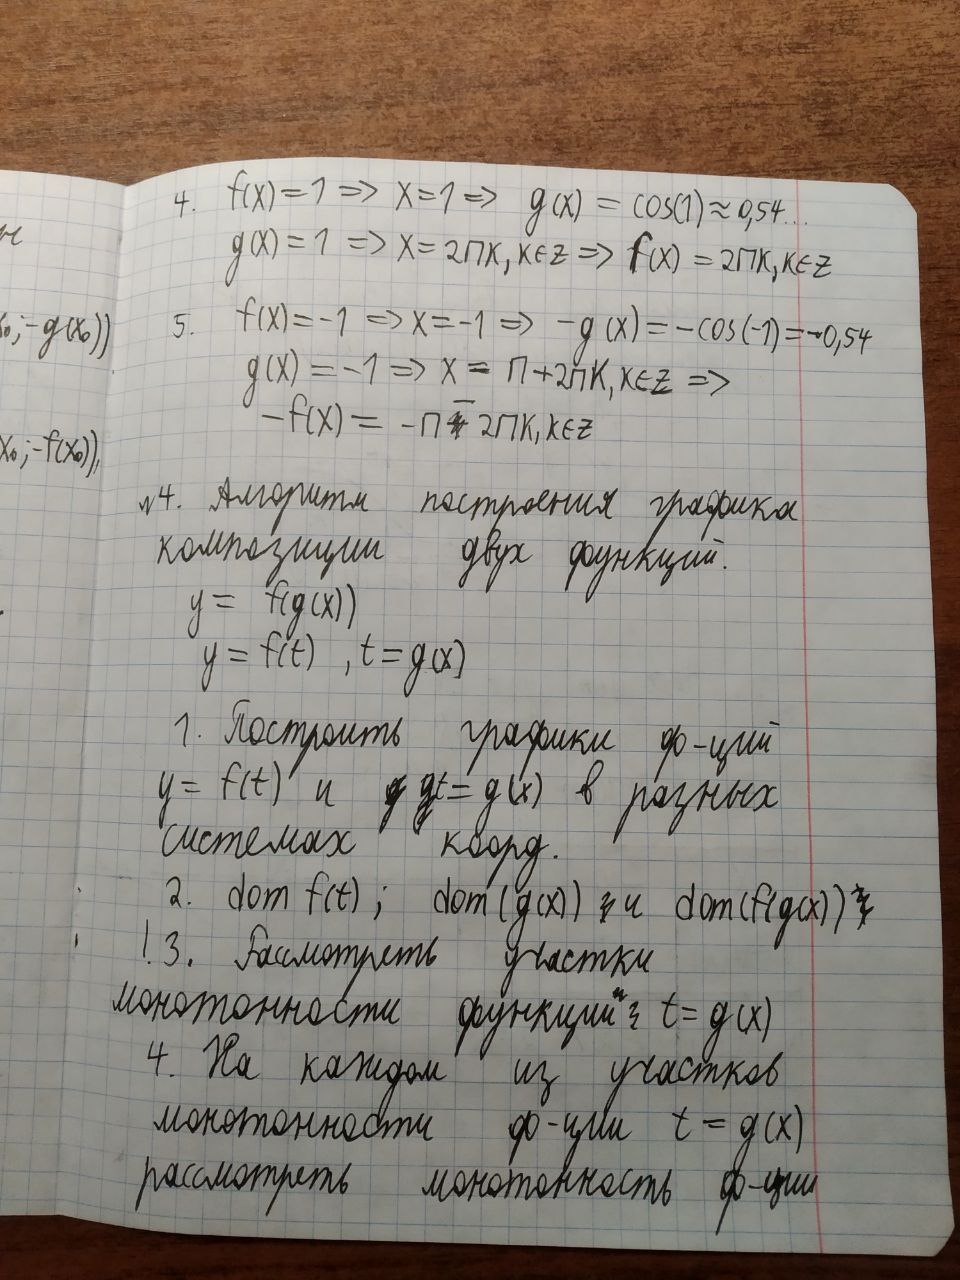 н
x₀;-g(x₀))
x₀;-f(x₀)),
4. f(x)=1 => x=1 => g(x) = cos(1)≈0,54...
g(x)=1 => x=2πk,k∈Z => f(x)=2πk,k∈Z
5. f(x)=-1 => x=-1 => -g(x)=-cos(-1)=-0,54
g(x)=-1 => x=π+2πk,k∈Z =>
-f(x)= -π-2πk,k∈Z
№4. Алгоритм построения графика
композиции двух функций.
y= f(g(x))
y=f(t) ,t=g(x)
1. Построить графики ф-ций
y=f(t) и t=g(x) в разных
системах коорд.
2. dom f(t); dom(g(x)) и dom(f(g(x))
!3. Рассмотреть участки
монотонности функций t=g(x)
4. На каждом из участков
монотонности ф-ции t=g(x)
рассмотреть монотонность ф-ции